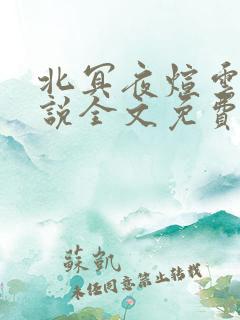 北冥夜煊雲
說全文免費
蘇凱
未任同意禁止转载